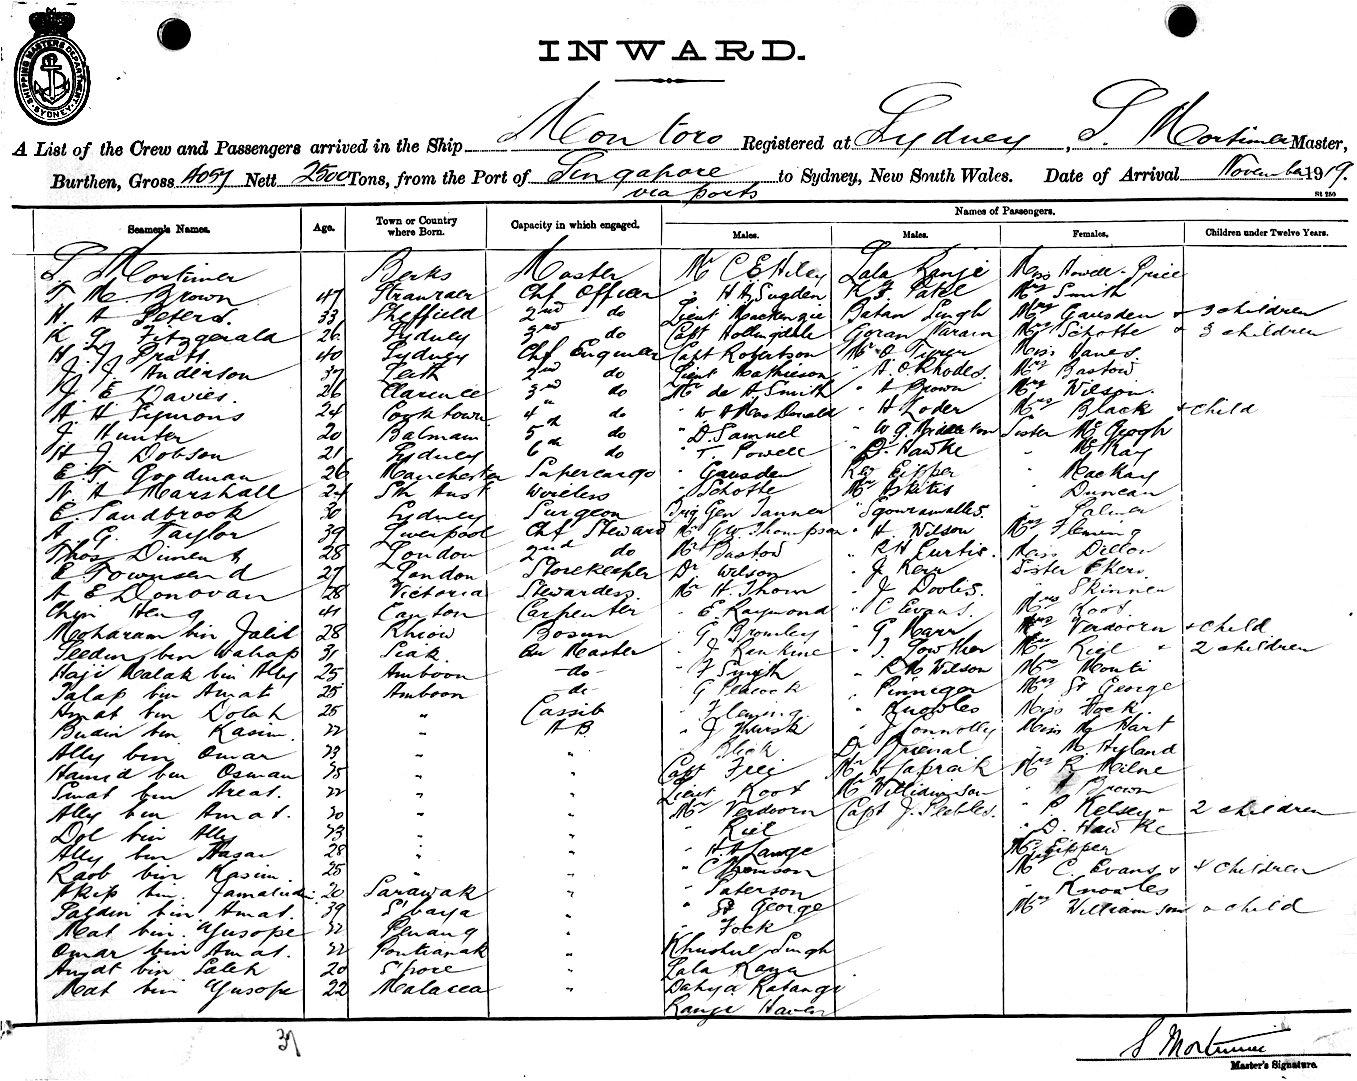 SHIPPING MASTERS DEPARTMENT SYDNEY
INWARD.
A List of the Crew and Passengers arrived in the Ship Montoro Registered at Sydney, S. Mortimer Master,
Burthen, Gross 4057 Nett 2500 Tons, from the Port of Singapore to Sydney, New South Wales. Date of Arrival November 1919.
via ports
Names of Passengers.
Seamen's Names. Age. Town or Country where Born. Capacity in which engaged. Males. Males. Females. Children under Twelve Years.
Mortimer Berks Master Mr C E Hiley Lala Miss Howell-Price
Brown 47 Stranraer Chf Officer " H H Sugden Patel Mrs Smith
H A Peters. 33 Sheffield 2nd do Lieut Mackenzie Batan Singh Mrs Gausden & 3 children
K Fitzgerald 26 Sydney 3rd do Capt Hollingdale Narain Mrs Schotte & 3 children
H J Pratt. 40 Sydney Chf Engineer Capt Robertson Mr Miss
J J Anderson 37 Leith 2nd do Lieut Mathieson " A C Rhodes. Mrs Bastow
E Davies. 26 Clarence 3rd do Mr de A Smith " A Brown Mrs Wilson.
A H Symons 24 Cooktown 4th do " W A MacDonald " H Loder Mrs Black & child
J Hunter 20 Balmain 5th do " D. Samuel " W G Sister
H J Dobson 21 Sydney 6th do " T. Powell " D. Hawke " McKay
E. T. Goodman 26 Manchester Supercargo " Gausden Rev Eipper " Mackay
N. A Marshall 24 Sth Aust Wireless " Schotte Mr " Duncan
E. Sandbrook 30 Sydney Surgeon Brig Gen Tanner " Palmer
A G. Taylor 39 Liverpool Chf Steward Mr G W Thompson " H Wilson Mrs Fleming
Thos 28 London 2nd do Mr Bastow " R H Curtis. Miss Dillon
E Townsend 27 London Storekeeper Dr Wilson " J Kerr Sister
A E Donovan 28 Victoria Stewardess. Mr H. Thom " J " Skinner
Chin Heng 41 Canton Carpenter " E. Raymond " C Evans. Mrs Koot
Moharam bin Jalil 28 Rhiow Bosun " G Bromley " G Marr Mrs Verdoorn & child
bin Wahap 31 Siak. Master " J Rankine " J. Gowther Mrs Riel & 2 children
Haji Malak bin Ally 25 Amboon -do- " F Smyth " R M Wilson Mrs Monti
Talap bin Amat 25 Amboon -do- " G Peacock " Finnigan Mrs St George
Amat bin Dolah 25 " Cassib " Fleming. " Knowles Miss Fock.
Budin bin Kasim. 22 " A B " J " J Connolly Miss Hart
Ally bin Omar 23 " " " Black Dr " M. Hyland
Hamid bin Osman 25 " " Capt Frei Mr Mrs R. Milne
bin 22 " " Lieut Koot Mr Williamson " Brown
Ally bin Amat. 30 " " Mr Verdoorn Capt J. Peebles. " P. Kelsey & 2 children
Dol bin Ally 23 " " " Riel " D. Hawke
Ally bin Hasan 28 " " " H A Lange Mrs Eipper
bin Kasim. 25 " " " C Mrs C. Evans & 4 children
Akip bin Jamaludin 20 Sarawak " " Paterson " Knowles
bin Amat. 39 S'baya " " St George Mrs Williamson & child
Mat bin Yusope 32 Penang " " Fock
Omar bin Amat. 22 Pontianak " Khushul Singh
Amat bin Saleh 20 S'pore " Lala
Mat bin Yusope 22 Malacca " Dahya
37
S Mortimer
Master's Signature.